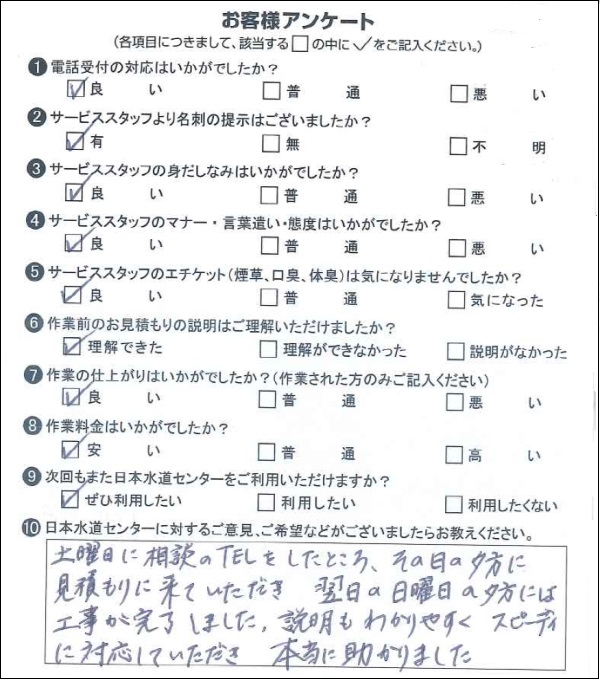 お客様アンケート
(各項目につきまして、該当する□の中に✓をご記入ください。)
❶電話受付の対応はいかがでしたか?
☑良い □普通 □悪い
❷サービススタッフより名刺の提示はございましたか?
☑有 □無 □不明
❸サービススタッフの身だしなみはいかがでしたか?
☑良い □普通 □悪い
❹サービススタッフのマナー・言葉遣い・態度はいかがでしたか?
☑良い □普通 □悪い
❺サービススタッフのエチケット(煙草、口臭、体臭)は気になりませんでしたか?
☑良い □普通 □気になった
❻作業前のお見積もりの説明はご理解いただけましたか?
☑理解できた □理解ができなかった □説明がなかった
❼作業の仕上がりはいかがでしたか?(作業された方のみご記入ください)
☑良い □普通 □悪い
❽作業料金はいかがでしたか?
☑安い □普通 □高い
❾次回もまた日本水道センターをご利用いただけますか?
☑ぜひ利用したい □利用したい □利用したくない
❿日本水道センターに対するご意見、ご希望などがございましたらお教えください。
土曜日に相談のTELをしたところ、その日の夕方に
見積もりに来ていただき 翌日の日曜日の夕方には
工事が完了しました。説明もわかりやすく スピーディ
に対応していただき 本当に助かりました